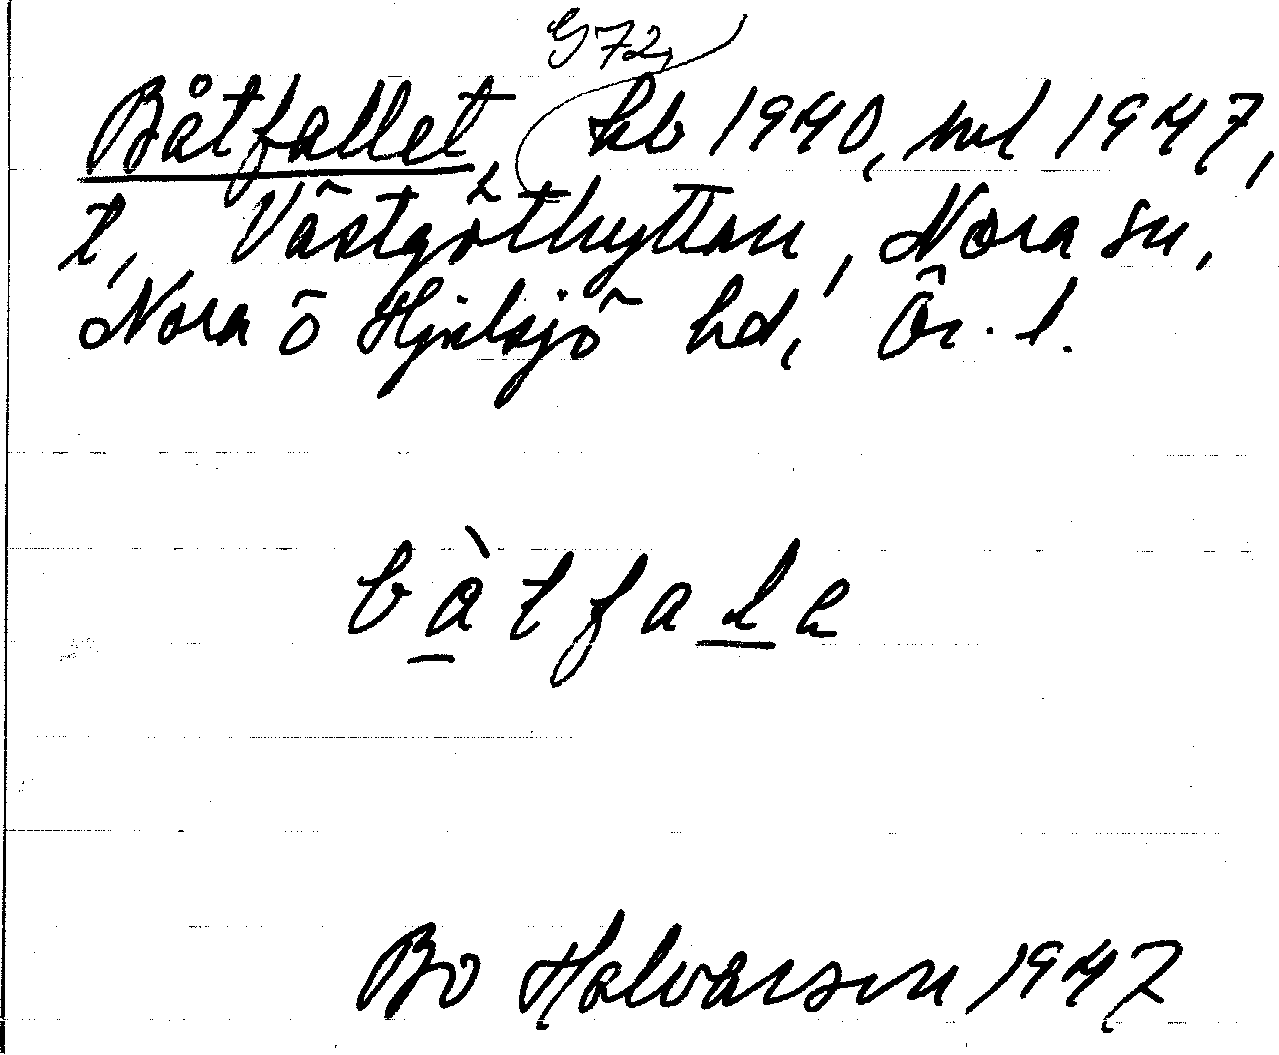 G 72,
Båtfallet, kb 1940, ml 1947,
t, Västgöthyttan, Nora sn,
Nora ö Hjulsjö hd, Ör. l.
bàtfale
Bo Halvarson 1947